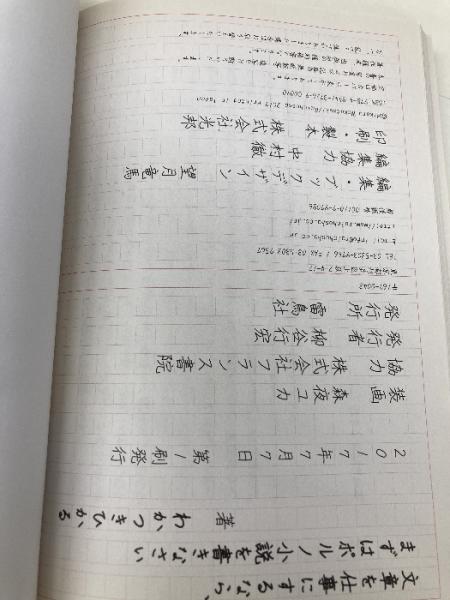 文章を仕事にするなら、
まずはポルノ小説を書きなさい
著 わかつきひかる
2017年7月7日 第1刷発行
装画 森夜
協力 株式会社フランス書院
発行者 柳谷行宏
発行所 雷鳥社
〒167-0043
東京都杉並区上荻2-4-12
TEL 03-5303-9766 / FAX 03-5303-9567
info@raichosha.co.jp
http://www.raichosha.co.jp/
郵便振替 00110-9-97086
編集・ブックデザイン 望月竜馬
編集協力 中村徹
印刷・製本 株式会社光邦
©Hikaru Wakatsuki/Raichosha 2017 Printed in Japan
定価はカバーに表示してあります。